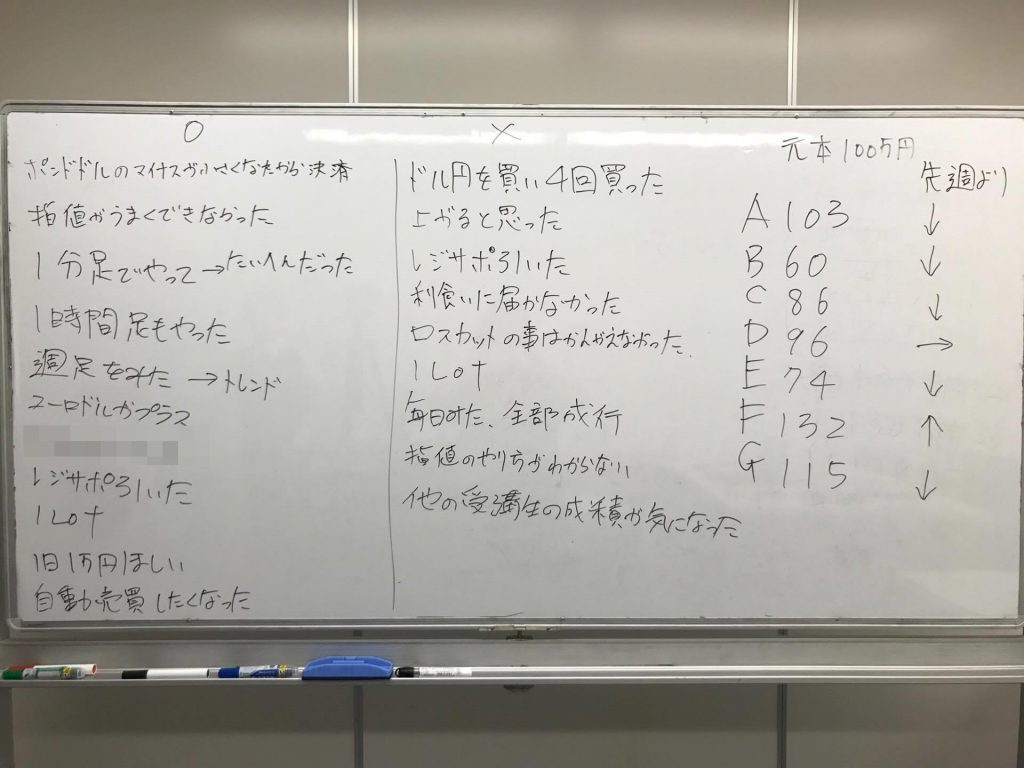 ○
ポンドドルのマイナスが小さくなったから決済
指値がうまくできなかった
1分足でやって→たいへんだった
1時間足もやった
週足をみた→トレンド
ユーロドルがプラス
レジサポ引いた
1Lot
1日1万円ほしい
自動売買したくなった
×
ドル円を買い4回買った
上がると思った
レジサポ引いた
利食いに届かなかった
ロスカットの事はかんがえなかった.
1Lot
毎日みた、全部成行
指値のやり方がわからない
他の受講生の成積が気になった
元本100万円
先週より
A 103 ↓
B 60 ↓
C 86 ↓
D 96 →
E 74 ↓
F 132 ↑
G 115 ↓